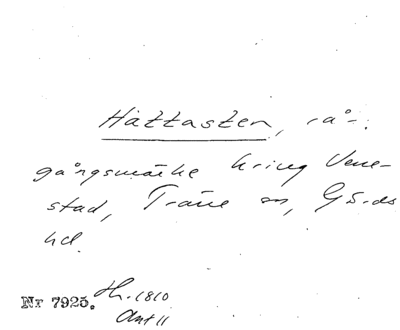 Hättasten, rå-
gångsmärke kring Vene-
stad, Träne sn, Gärds
hd.
Nr 7925. Th. 1810
Ant 11